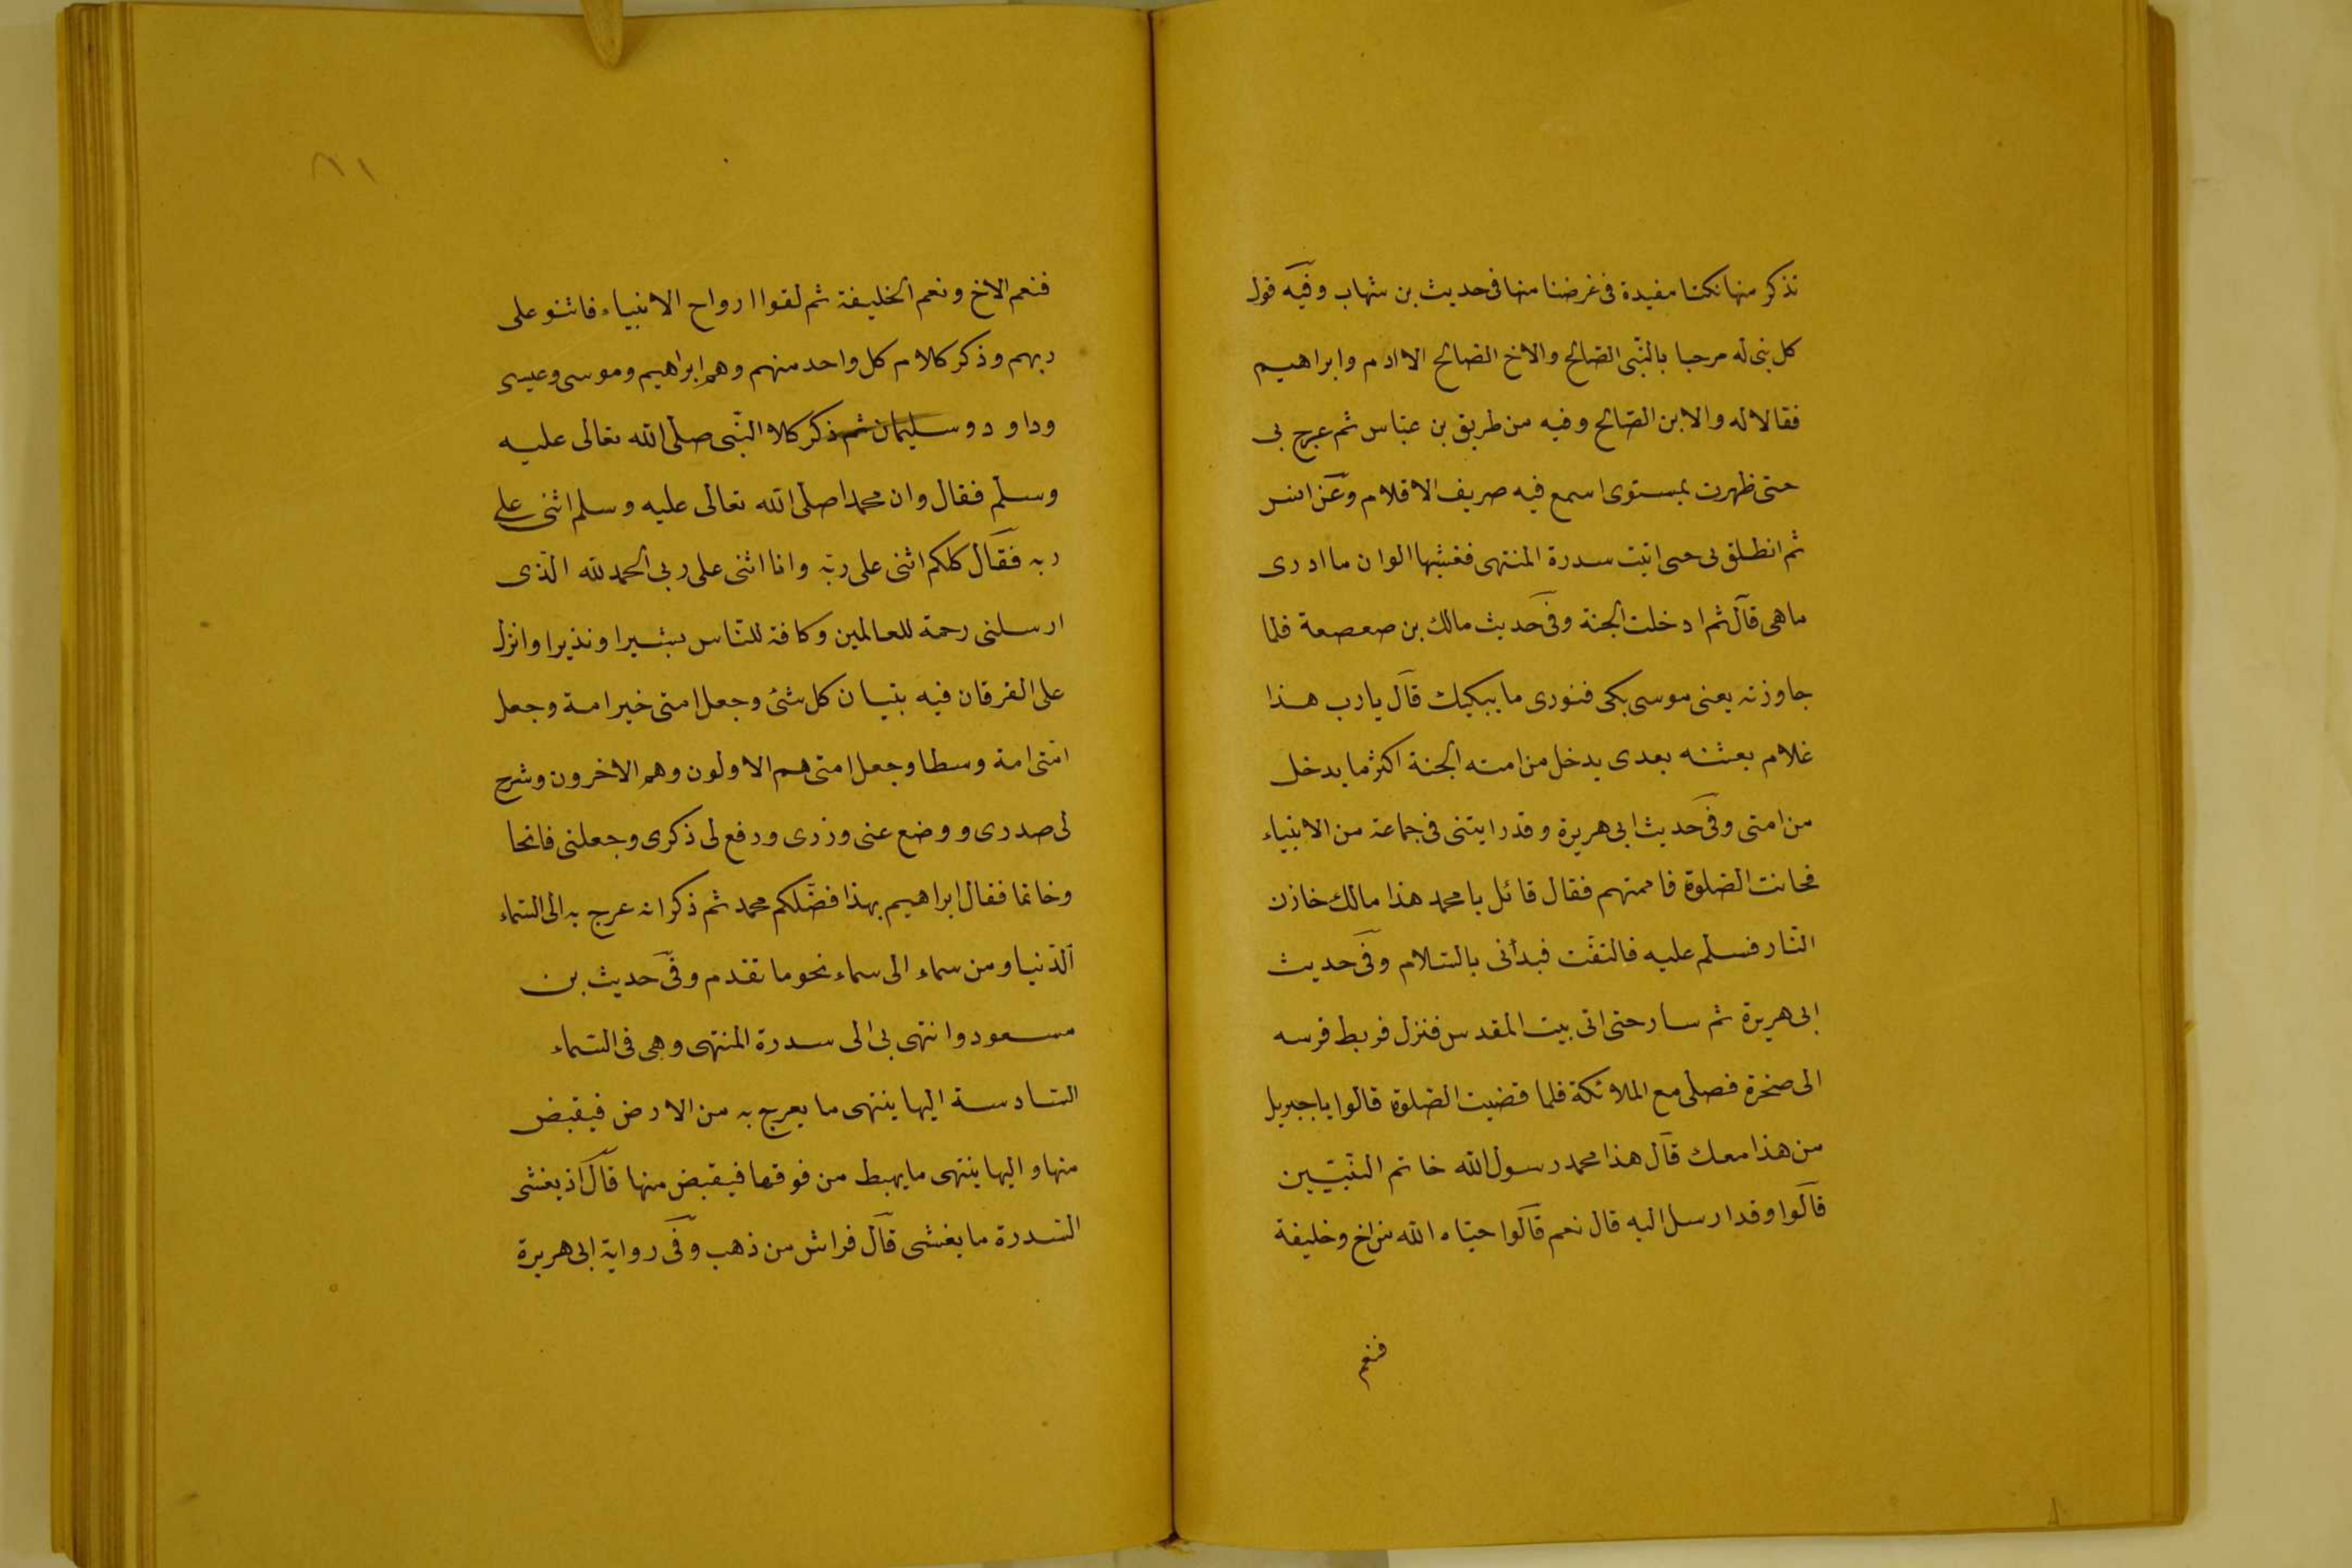 نذكر منها نكتا مفيدة فى غرضنا منها فى حديث بن شهاب وفيه قول
كل نبى له مرحبا بالنّبى الصّالح والاخ الصّالح الا ادم وابراهيم
فقالا له والابن الصّالح وفيه من طريق بن عبّاس ثم عرج بى
حتى ظهرت بمستوى اسمع فيه صريف الاقلام وعن انس
ثم انطلق بى حتى اتيت سدرة المنتهى فغشيها الوان ما ادرى
ما هى قال ثم ادخلت الجنة وفى حديث مالك بن صعصعة فلما
جاوزته يعنى موسى بكى فنودى ما يبكيك قال يا رب هذا
غلام بعثته بعدى يدخل من امته الجنة اكثر ما يدخل
من امتى وفى حديث ابى هريرة وقد رايتنى فى جماعة من الانبياء
فحانت الصّلوة فاممتهم فقال قائل يا محمد هذا مالك خازن
النّار فسلم عليه فالتفّت فبدأنى بالسّلام وفى حديث
ابى هريرة ثم سار حتى اتى بيت المقدس فنزل فربط فرسه
الى صخرة فصلى مع الملائكة فلما قضيت الصّلوة قالوا يا جبريل
من هذا معك قال هذا محمد رسول الله خاتم النّبيّين
قالوا وقد ارسل اليه قال نعم قالوا حيّاه الله من اخ وخليفة
فنعم
٨١
فنعم الاخ ونعم الخليفة ثم لقوا ارواح الانبياء فاثنو على
ربهم وذكر كلام كل واحد منهم وهم ابراهيم وموسى وعيسى
وداود وسليمان ثم ذكر كلا النّبى صلى الله تعالى عليه
وسلّم فقال وان محمدا صلى الله تعالى عليه وسلم اثنى على
ربه فقال كلكم اثنى على ربّه وانا اثنى على ربى الحمد لله الّذى
ارسلنى رحمة للعالمين وكافة للنّاس بشيرا ونذيرا وانزل
على الفرقان فيه تبيان كل شئ وجعل امتى خير امة وجعل
امّتى امة وسطا وجعل امتى هم الاولون وهم الاخرون وشرح
لى صدرى ووضع عنى وزرى ورفع لى ذكرى وجعلنى فاتحا
وخاتما فقال ابراهيم بهذا فضّلكم محمد ثم ذكر انه عرج به الى السّماء
الدّنيا ومن سماء الى سماء نحو ما تقدم وفى حديث بن
مسعود وانتهى بى الى سدرة المنتهى وهى فى السّماء
السّادسة اليها ينتهى ما يعرج به من الارض فيقبض
منها واليها ينتهى ما يهبط من فوقها فيقبض منها قال اذ يغشى
السّدرة ما يغشى قال فراش من ذهب وفى رواية ابى هريرة